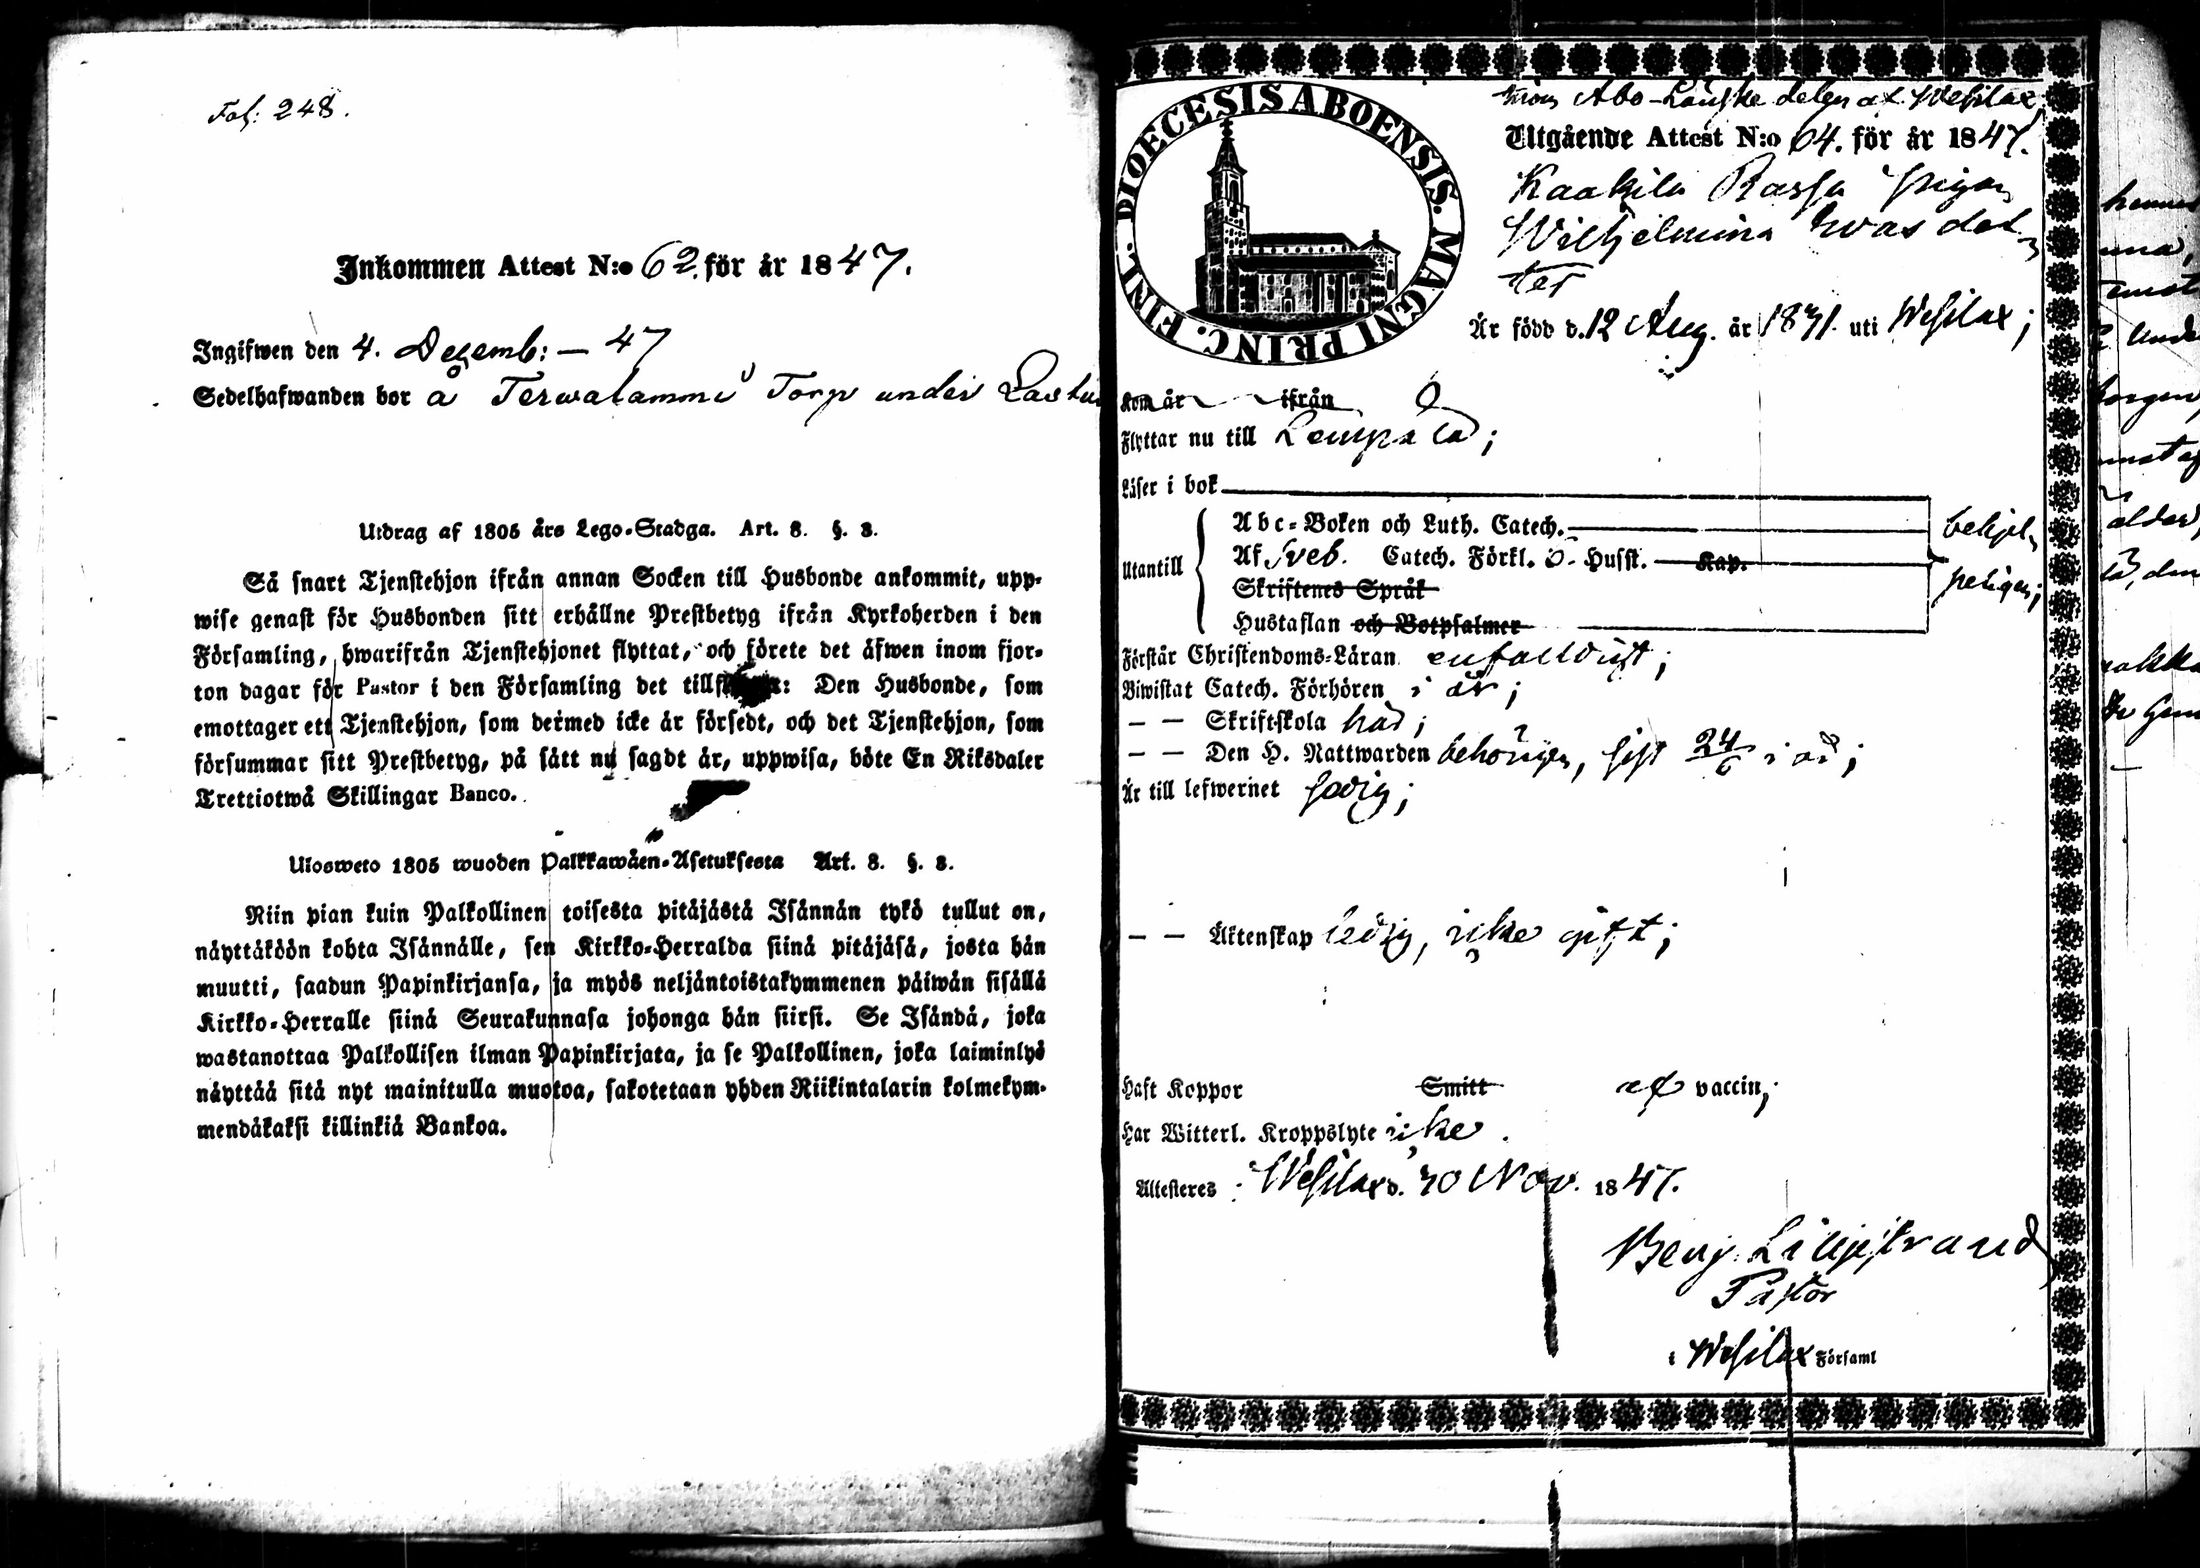 Fol: 248.
Inkommen Attest N:o 62. för år 1847.
Ingifwen den 4. Decemb: – 47
Sedelhafwanden bor å Terwalammi Torp under
Utdrag af 1805 års Lego-Stadga. Art. 8. §. 8.
Så snart Tjenstehjon ifrån annan Socken till Husbonde ankommit, upp-
wise genast för Husbonden sitt erhållne Prestbetyg ifrån Kyrkoherden i den
Församling, hwarifrån Tjenstehjonet flyttat, och förete det äfwen inom fjor-
ton dagar för Pastor i den Församling det : Den Husbonde, som
emottager ett Tjenstehjon, som dermed icke är försedt, och det Tjenstehjon, som
försummar sitt Prestbetyg, på sätt nu sagdt är, uppwisa, böte En Riksdaler
Trettiotwå Skillingar Banco.
Ulosweto 1805 wuoden Palkkawäen-Asetuksesta Art. 8. §. 8.
Niin pian kuin Palkollinen toisesta pitäjästä Isännän tykö tullut on,
näyttäköön kohta Isännälle, sen Kirkko-Herralda siinä pitäjäsä, josta hän
muutti, saadun Papinkirjansa, ja myös neljäntoistakymmenen päiwän sisällä
Kirkko-Herralle siinä Seurakunnasa johonga hän siirsi. Se Isändä, joka
wastanottaa Palkollisen ilman Papinkirjata, ja se Palkollinen, joka laiminlyö
näyttää sitä nyt mainitulla muotoa, sakotetaan yhden Riikintalarin kolmekym-
mendäkaksi killinkiä Bankoa.
DIOECESIS ABOENSIS. MAGNI PRINC. FINL.
från Åbo-Länske delen af Wesilax
Utgående Attest N:o 64. för år 1847.
Kaakila Rassa pigan
Wilhelmina
ter
Är född d. 12 Aug. år 1831. uti Wesilax;
Kom år ifrån
Flyttar nu till Lempälä;
Läser i bok
Utantill
Abc-Boken och Luth. Catech.
Af Sveb. Catech. Förkl. o. Husst. Kap.
Skriftenes Språk
Hustaflan och Botpsalmer
behjel-
peligen;
Förstår Christendoms-Läran enfaldigt;
Biwistat Catech. Förhören i år;
— — Skriftskola
— — Den H. Nattwarden behörigen, sist 24/6 i år;
Är till lefwernet
— — Äktenskap ledig, icke gift;
Haft Koppor Smitt af vaccin;
Har Witterl. Kroppslyte icke.
Attesteres Wesilax d. 30 Nov. 1847.
Benj. Liljestrand
Pastor
i Wesilax Församl